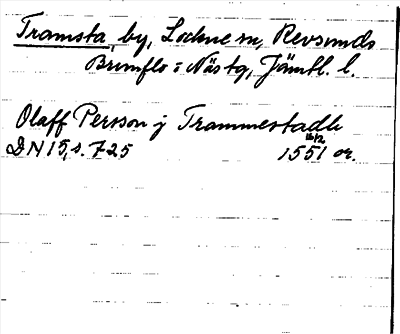 Tramsta, by, Lockne sn, Revsunds
Brunflo o Näs tg, Jämtl. l.
Olaff Persson j Trammestadh
DN 15, s. 725 16/2 1551 or.